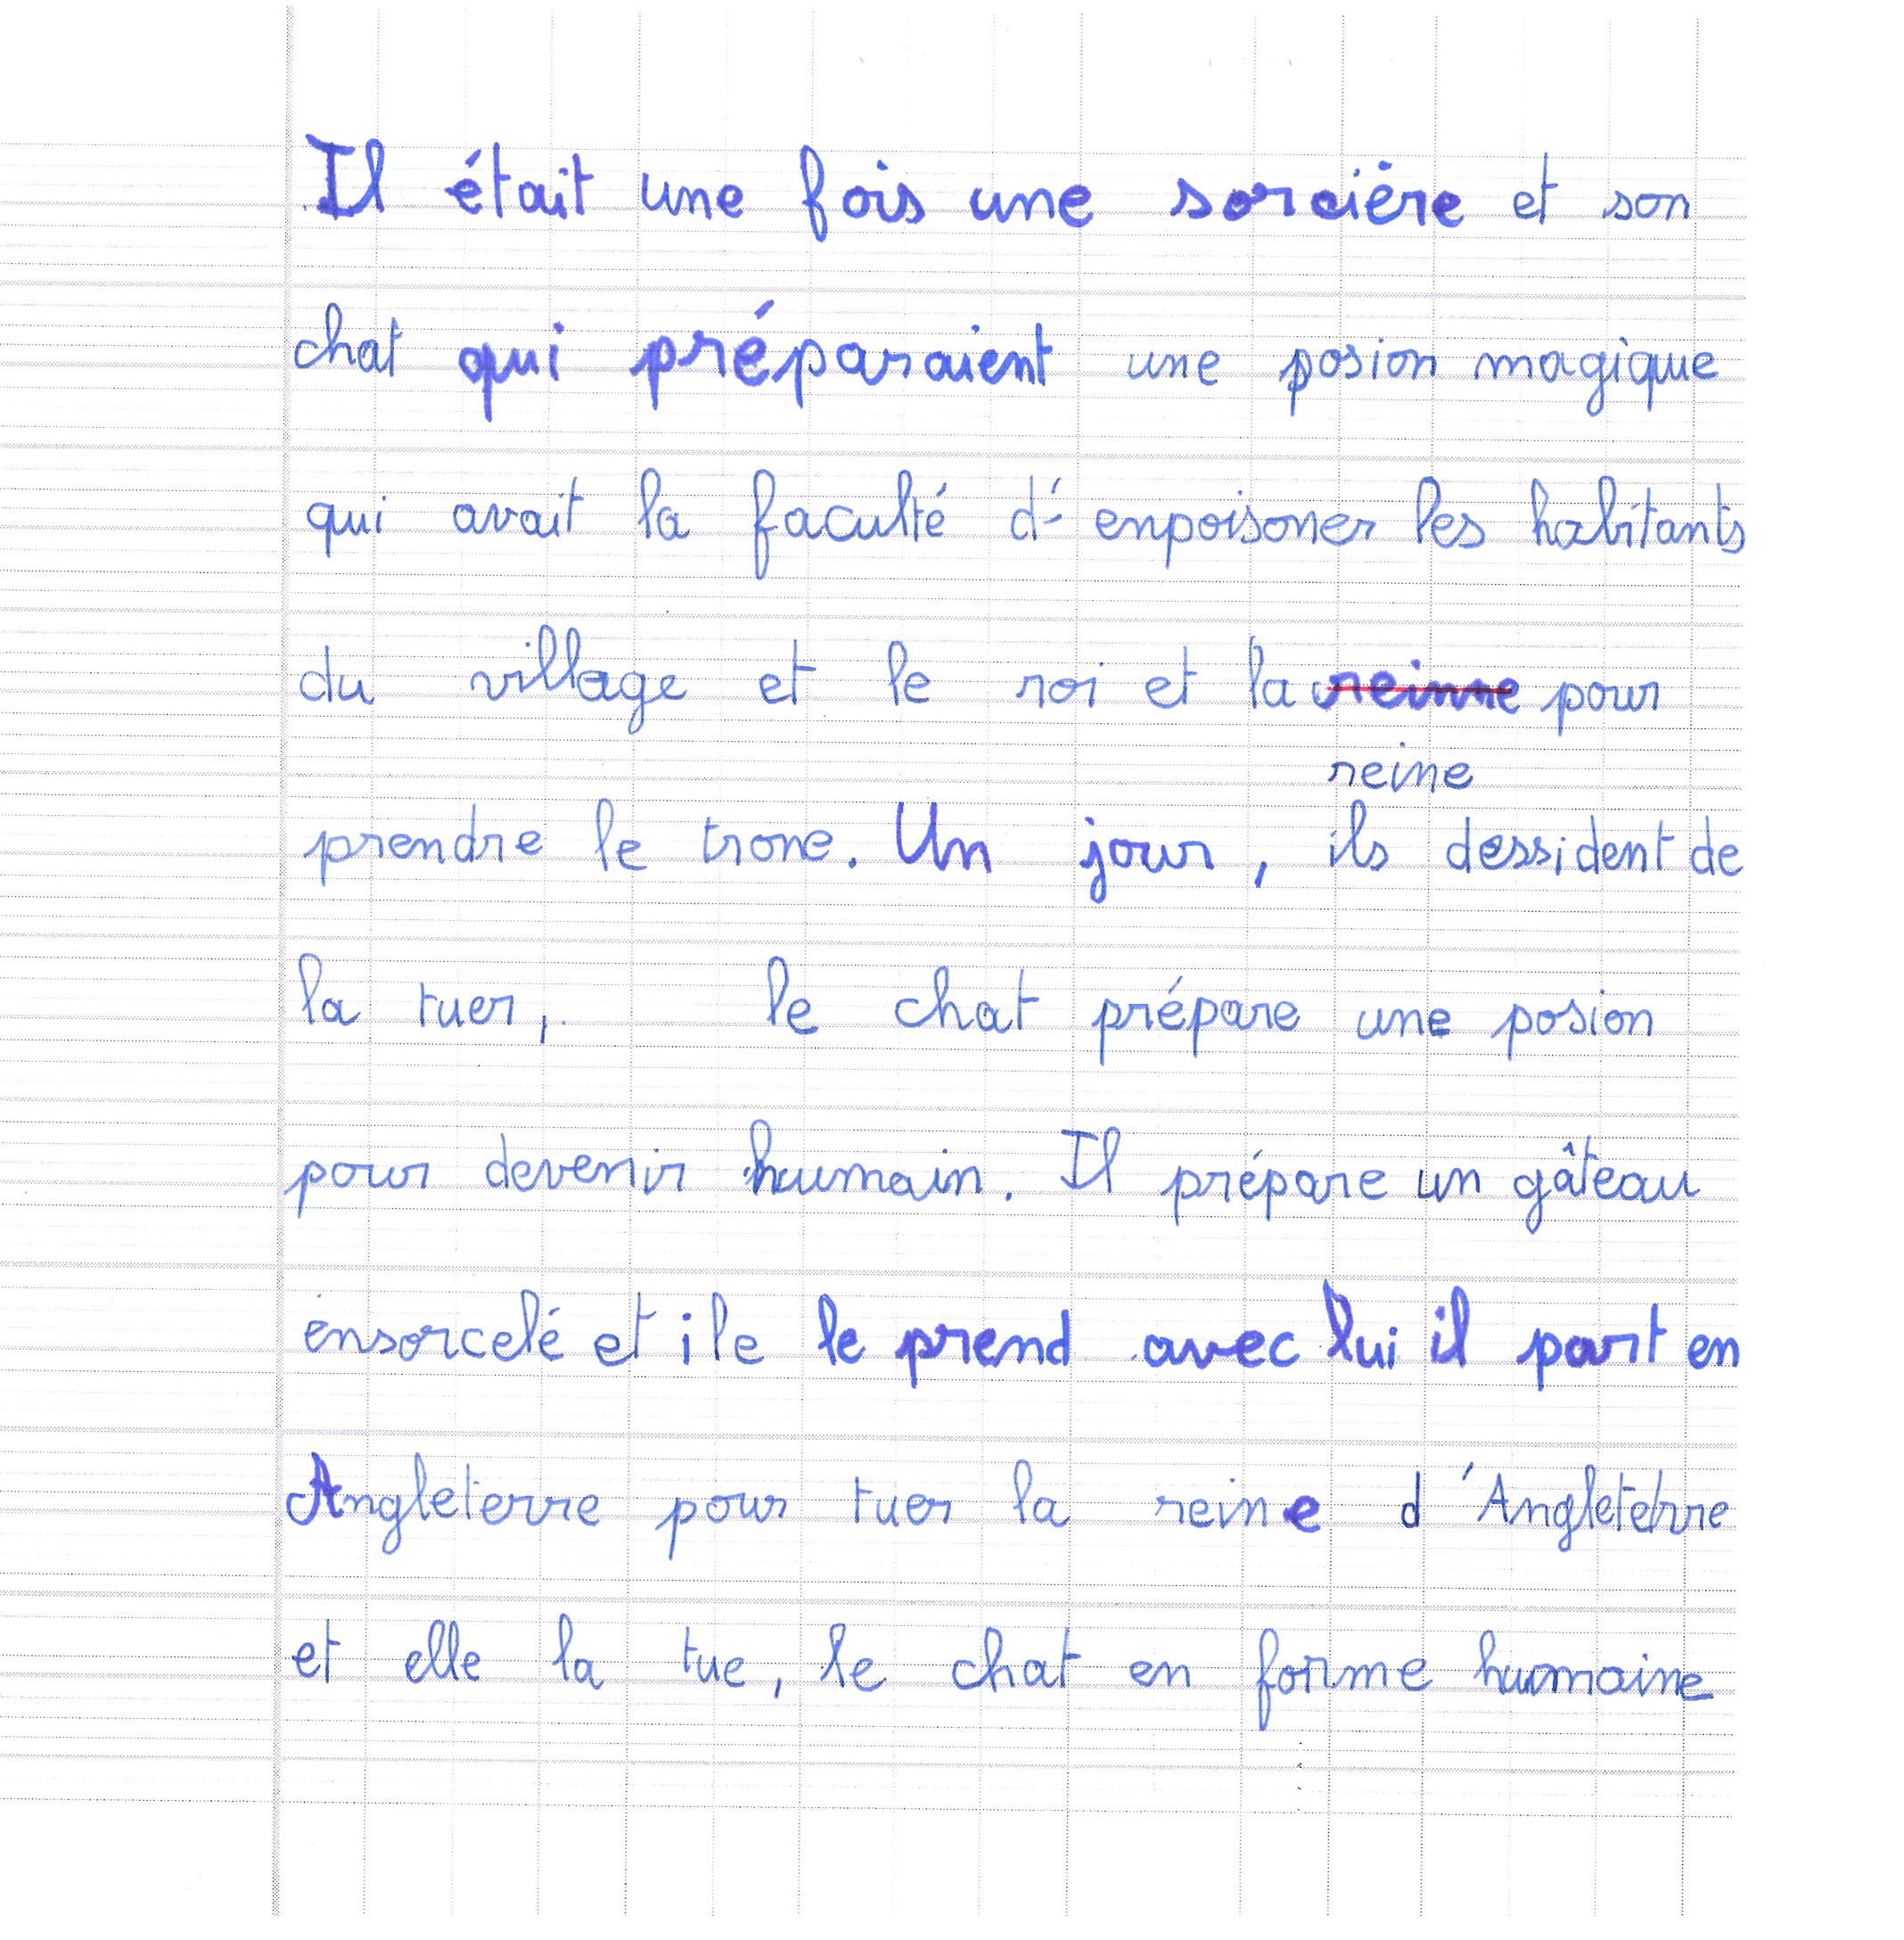 Il était une fois une sorcière et son
chat qui préparaient une posion magique
qui avait la faculté d'enpoisoner les habitants
du village et le roi et la reinne pour
reine
prendre le trone. Un jour, ils dessident de
la tuer, le chat prépare une posion
pour devenir humain. Il prépare un gâteau
ensorcelé et ile le prend avec lui il part en
Angleterre pour tuer la reine d'Angleterre
et elle la tue, le chat en forme humaine